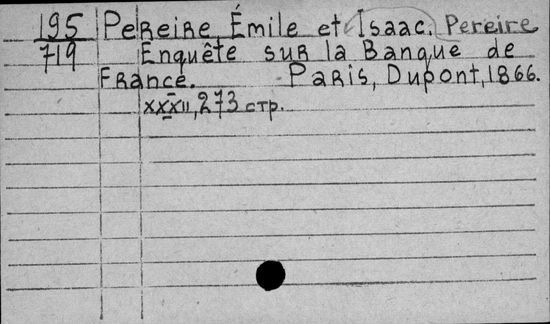 195 Pereire, Émile et Isaac. Pereire
719 Enquête sur la Banque de
France. Paris, Dupont, 1866.
XXXII, 273 стр.